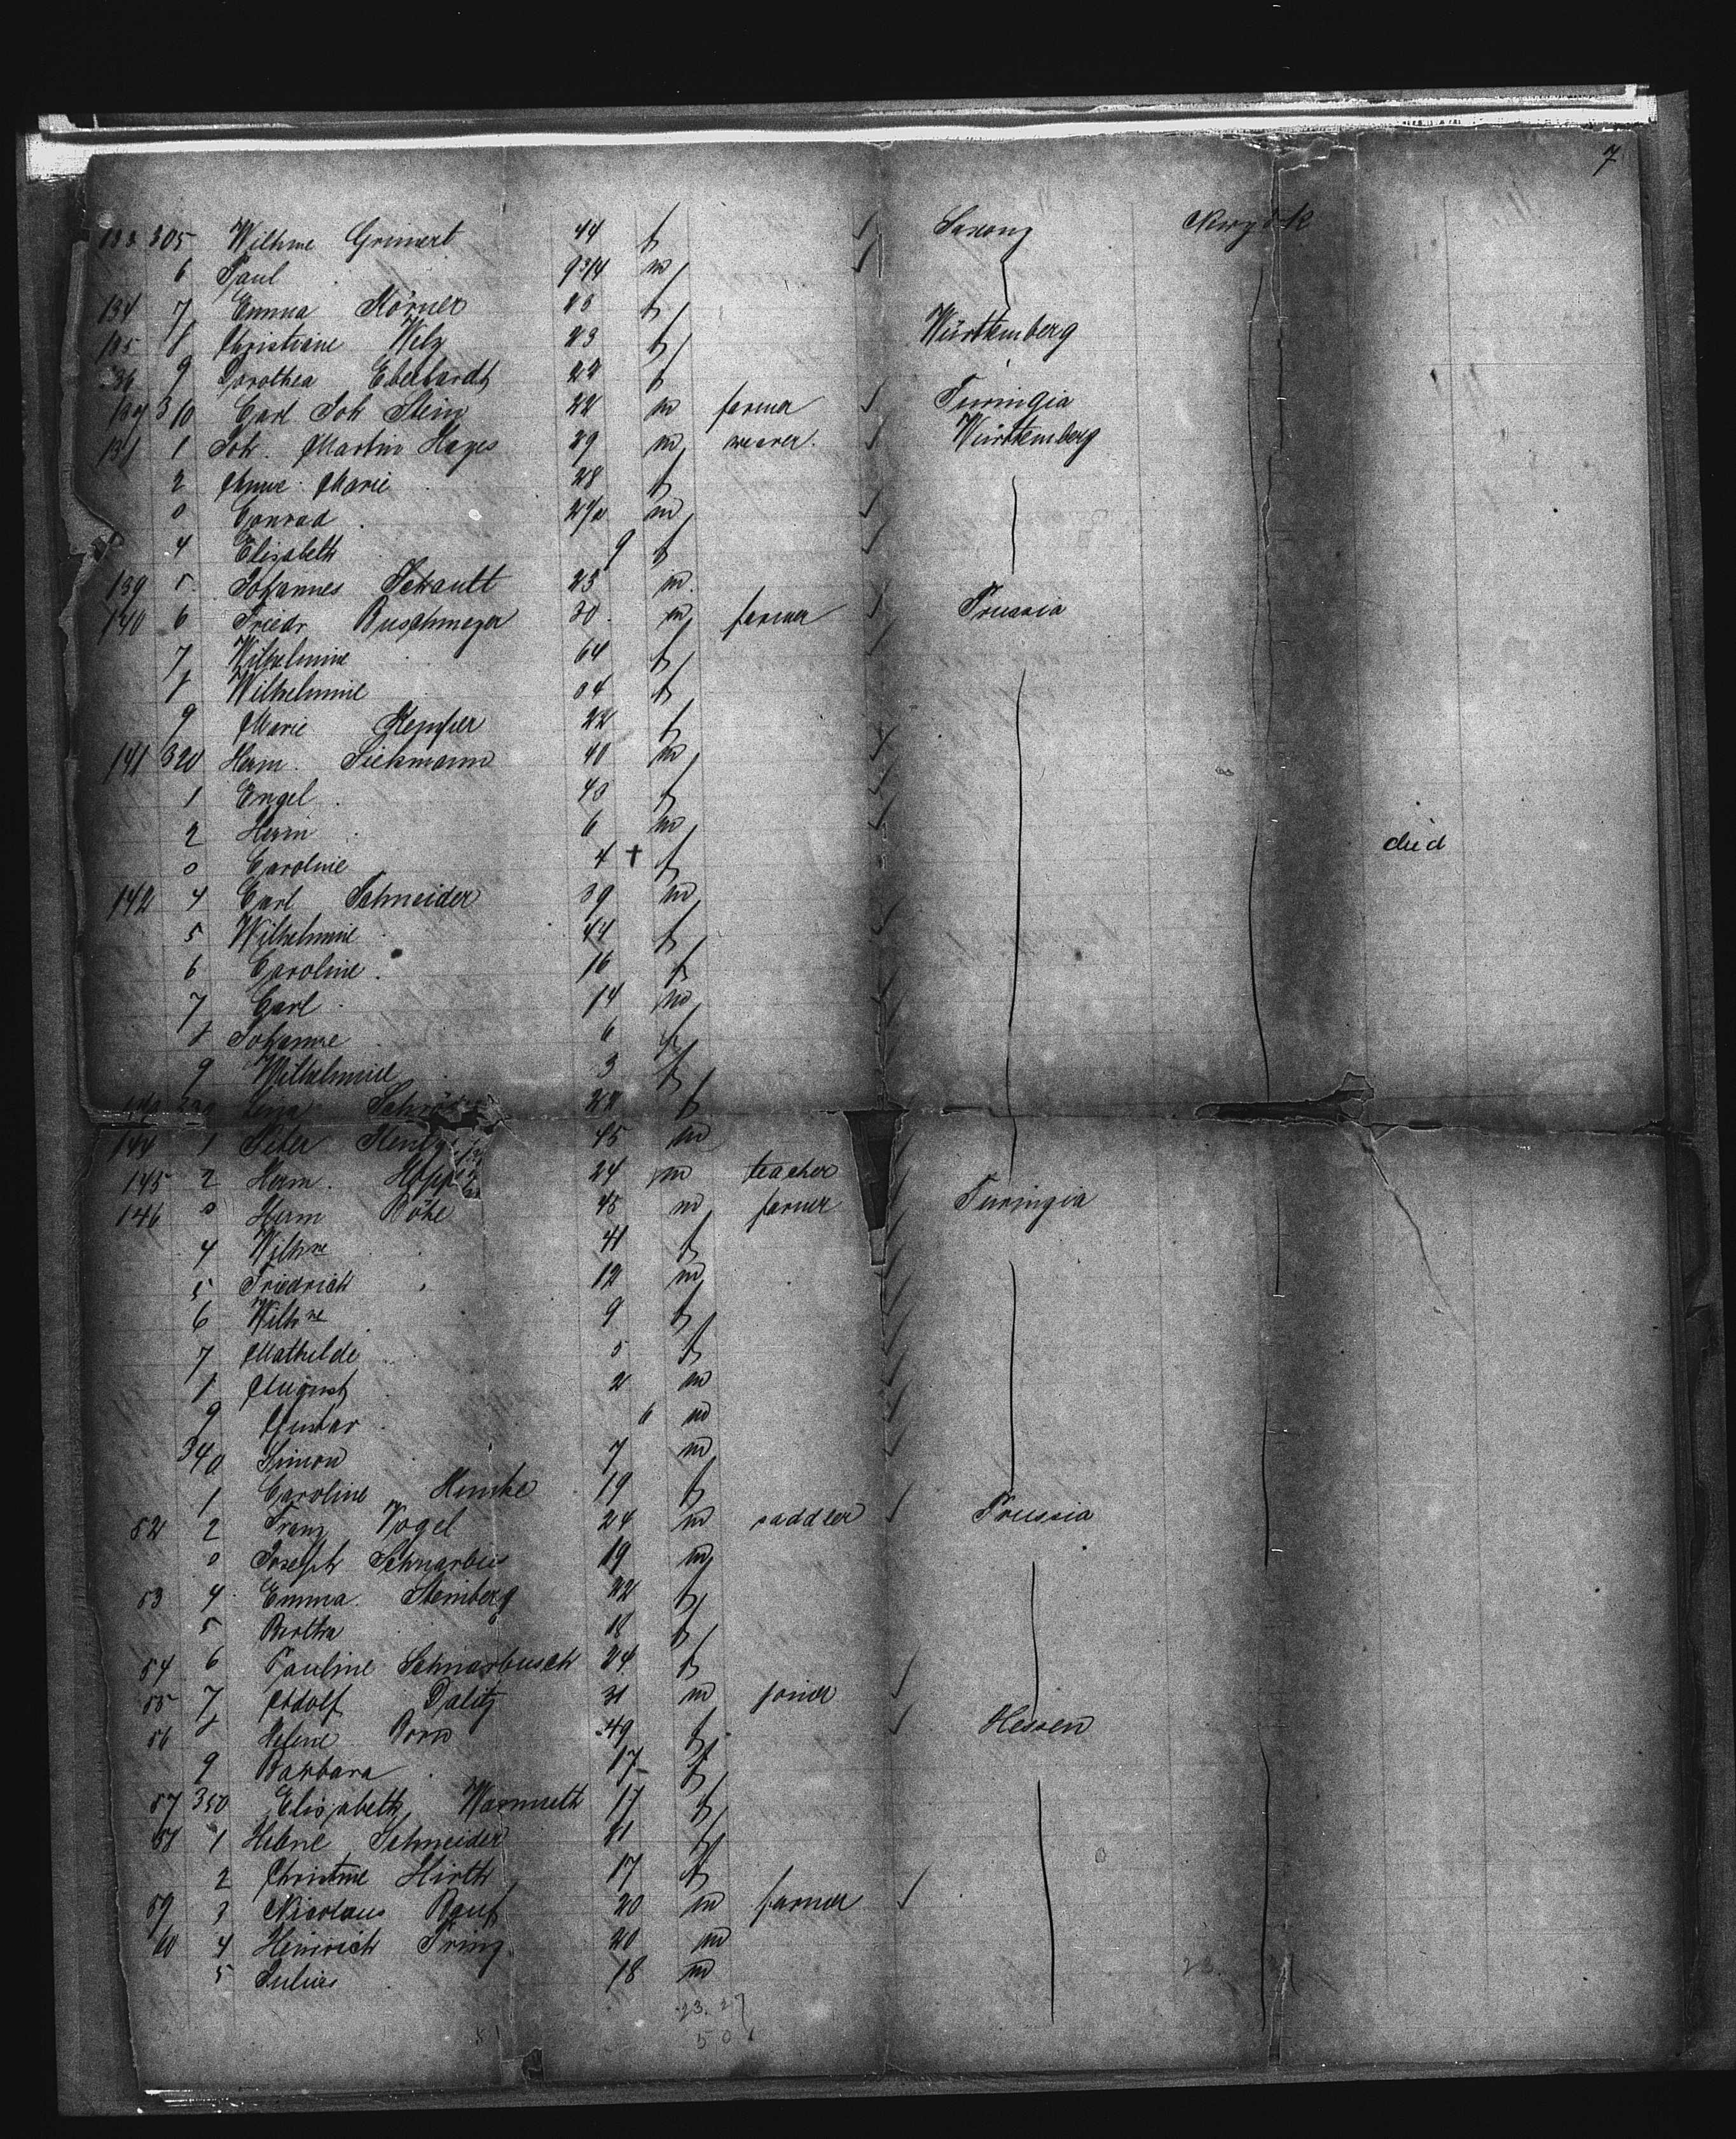 7
305 Wilhme Grunert 44 f Saxony Newyork
6 Paul 9 3/4 m
134 7 Emma Körner 23 f
135 8 Christiane Welz 23 f Württemberg
136 9 Dorothea Eberhardt 22 f
137 310 Carl Joh Stein 22 m farmer Turingia
138 1 Joh. Martin Hayes 29 m weaver. Württemberg
2 Anne Marie 28 f
3 Conrad m
4 Elisabeth 9 f
139 5 Johannes Schault 23 m
140 6 Friedr Buschmeyer 30 m farmer Prussia
7 Wilhelmine 64 f
8 Wilhelmine 34 f
9 Marie Kemper 22 f
141 320 Herm. Siekmann 40 m
1 Engel 43 f
2 Herm 6 m
3 Caroline 4 † f died
142 4 Carl Schneider 39 m
5 Wilhelmine 44 f
6 Caroline 16 f
7 Carl 14 m
8 Johanne 6 f
9 Wilhelmine 3 f
Lina 22 f
144 1 Peter 45 m
145 2 Herm. 24 m teacher
146 3 Herm Böke 45 m farmer Turingia
4 Wilhne 41 f
5 Friedrich 12 m
6 Wilhne 9 f
7 Mathilde 5 f
8 August 2 m
9 Gustav 6 m
340 Simon 7 m
1 Caroline Hunke 19 f
52 2 Franz Vogel 24 m saddler Prussia
3 Joseph Schnarbus 19 m
53 4 Emma Steinberg 22 f
5 Bertha 18 f
54 6 Pauline Schnarbusch 24 f
55 7 Adolf Dalitz 31 m joiner
56 8 Helene Born 49 f Hessen
9 Barbara 17 f
57 350 Elisabeth Warmuth 17 f
58 1 Helene Schneider 21 f
2 Christine Hirth 17 f
59 3 Nicolaus Rauf 20 m farmer
60 4 Heinrich Pring 20 m
5 Julius 18 m
23. 27
50